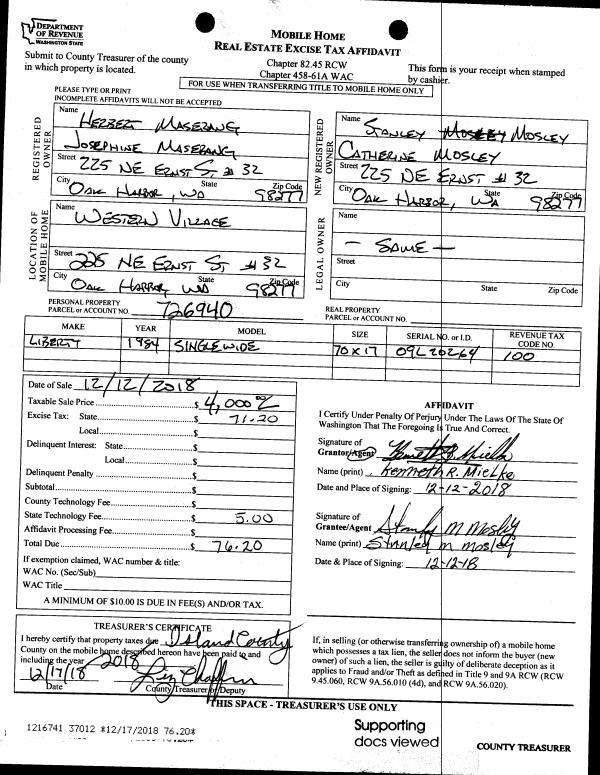 DEPARTMENT
OF REVENUE
WASHINGTON STATE
MOBILE HOME
REAL ESTATE EXCISE TAX AFFIDAVIT
Submit to County Treasurer of the county
in which property is located.
Chapter 82.45 RCW
Chapter 458-61A WAC
This form is your receipt when stamped
by cashier.
FOR USE WHEN TRANSFERRING TITLE TO MOBILE HOME ONLY
PLEASE TYPE OR PRINT
INCOMPLETE AFFIDAVITS WILL NOT BE ACCEPTED
REGISTERED
OWNER
Name
HERBERT MASEBANG
JOSEPHINE MASEBANG
Street 225 NE ERNST ST # 32
City State Zip Code
OAK HARBOR, WA 98277
NEW REGISTERED
OWNER
Name
STANLEY MOSLEY
CATHERINE MOSLEY
Street 225 NE ERNST # 32
City State Zip Code
OAK HARBOR, WA 98277
LOCATION OF
MOBILE HOME
Name
WESTERN VILLAGE
Street 225 NE ERNST ST # 32
City State Zip Code
OAK HARBOR WA 98277
LEGAL OWNER
Name
- SAME -
Street
City State Zip Code
PERSONAL PROPERTY
PARCEL or ACCOUNT NO. 726940
REAL PROPERTY
PARCEL or ACCOUNT NO.
MAKE YEAR MODEL SIZE SERIAL NO. or I.D. REVENUE TAX
CODE NO.
LIBERTY 1984 SINGLEWIDE 70 X 17 09L20264 100
Date of Sale 12/12/2018
Taxable Sale Price $ 4,000 00
Excise Tax: State $ 71.20
Local $
Delinquent Interest: State $
Local $
Delinquent Penalty $
Subtotal $
County Technology Fee $
State Technology Fee $ 5.00
Affidavit Processing Fee $
Total Due $ 76.20
If exemption claimed, WAC number & title:
WAC No. (Sec/Sub)
WAC Title
A MINIMUM OF $10.00 IS DUE IN FEE(S) AND/OR TAX.
AFFIDAVIT
I Certify Under Penalty Of Perjury Under The Laws Of The State Of
Washington That The Foregoing Is True And Correct.
Signature of
Grantor/Agent
Name (print) Kenneth R. Mielke
Date and Place of Signing: 12-12-2018
Signature of
Grantee/Agent Stanley M Mosley
Name (print) Stanley m mosley
Date & Place of Signing: 12-12-18
TREASURER'S CERTIFICATE
I hereby certify that property taxes due Island County
County on the mobile home described hereon have been paid to and
including the year 2018
12/17/18
Date County Treasurer or Deputy
If, in selling (or otherwise transferring ownership of) a mobile home
which possesses a tax lien, the seller does not inform the buyer (new
owner) of such a lien, the seller is guilty of deliberate deception as it
applies to Fraud and/or Theft as defined in Title 9 and 9A RCW (RCW
9.45.060, RCW 9A.56.010 (4d), and RCW 9A.56.020).
THIS SPACE - TREASURER'S USE ONLY
1216741 37012 *12/17/2018 76.20*
Supporting
docs viewed
COUNTY TREASURER